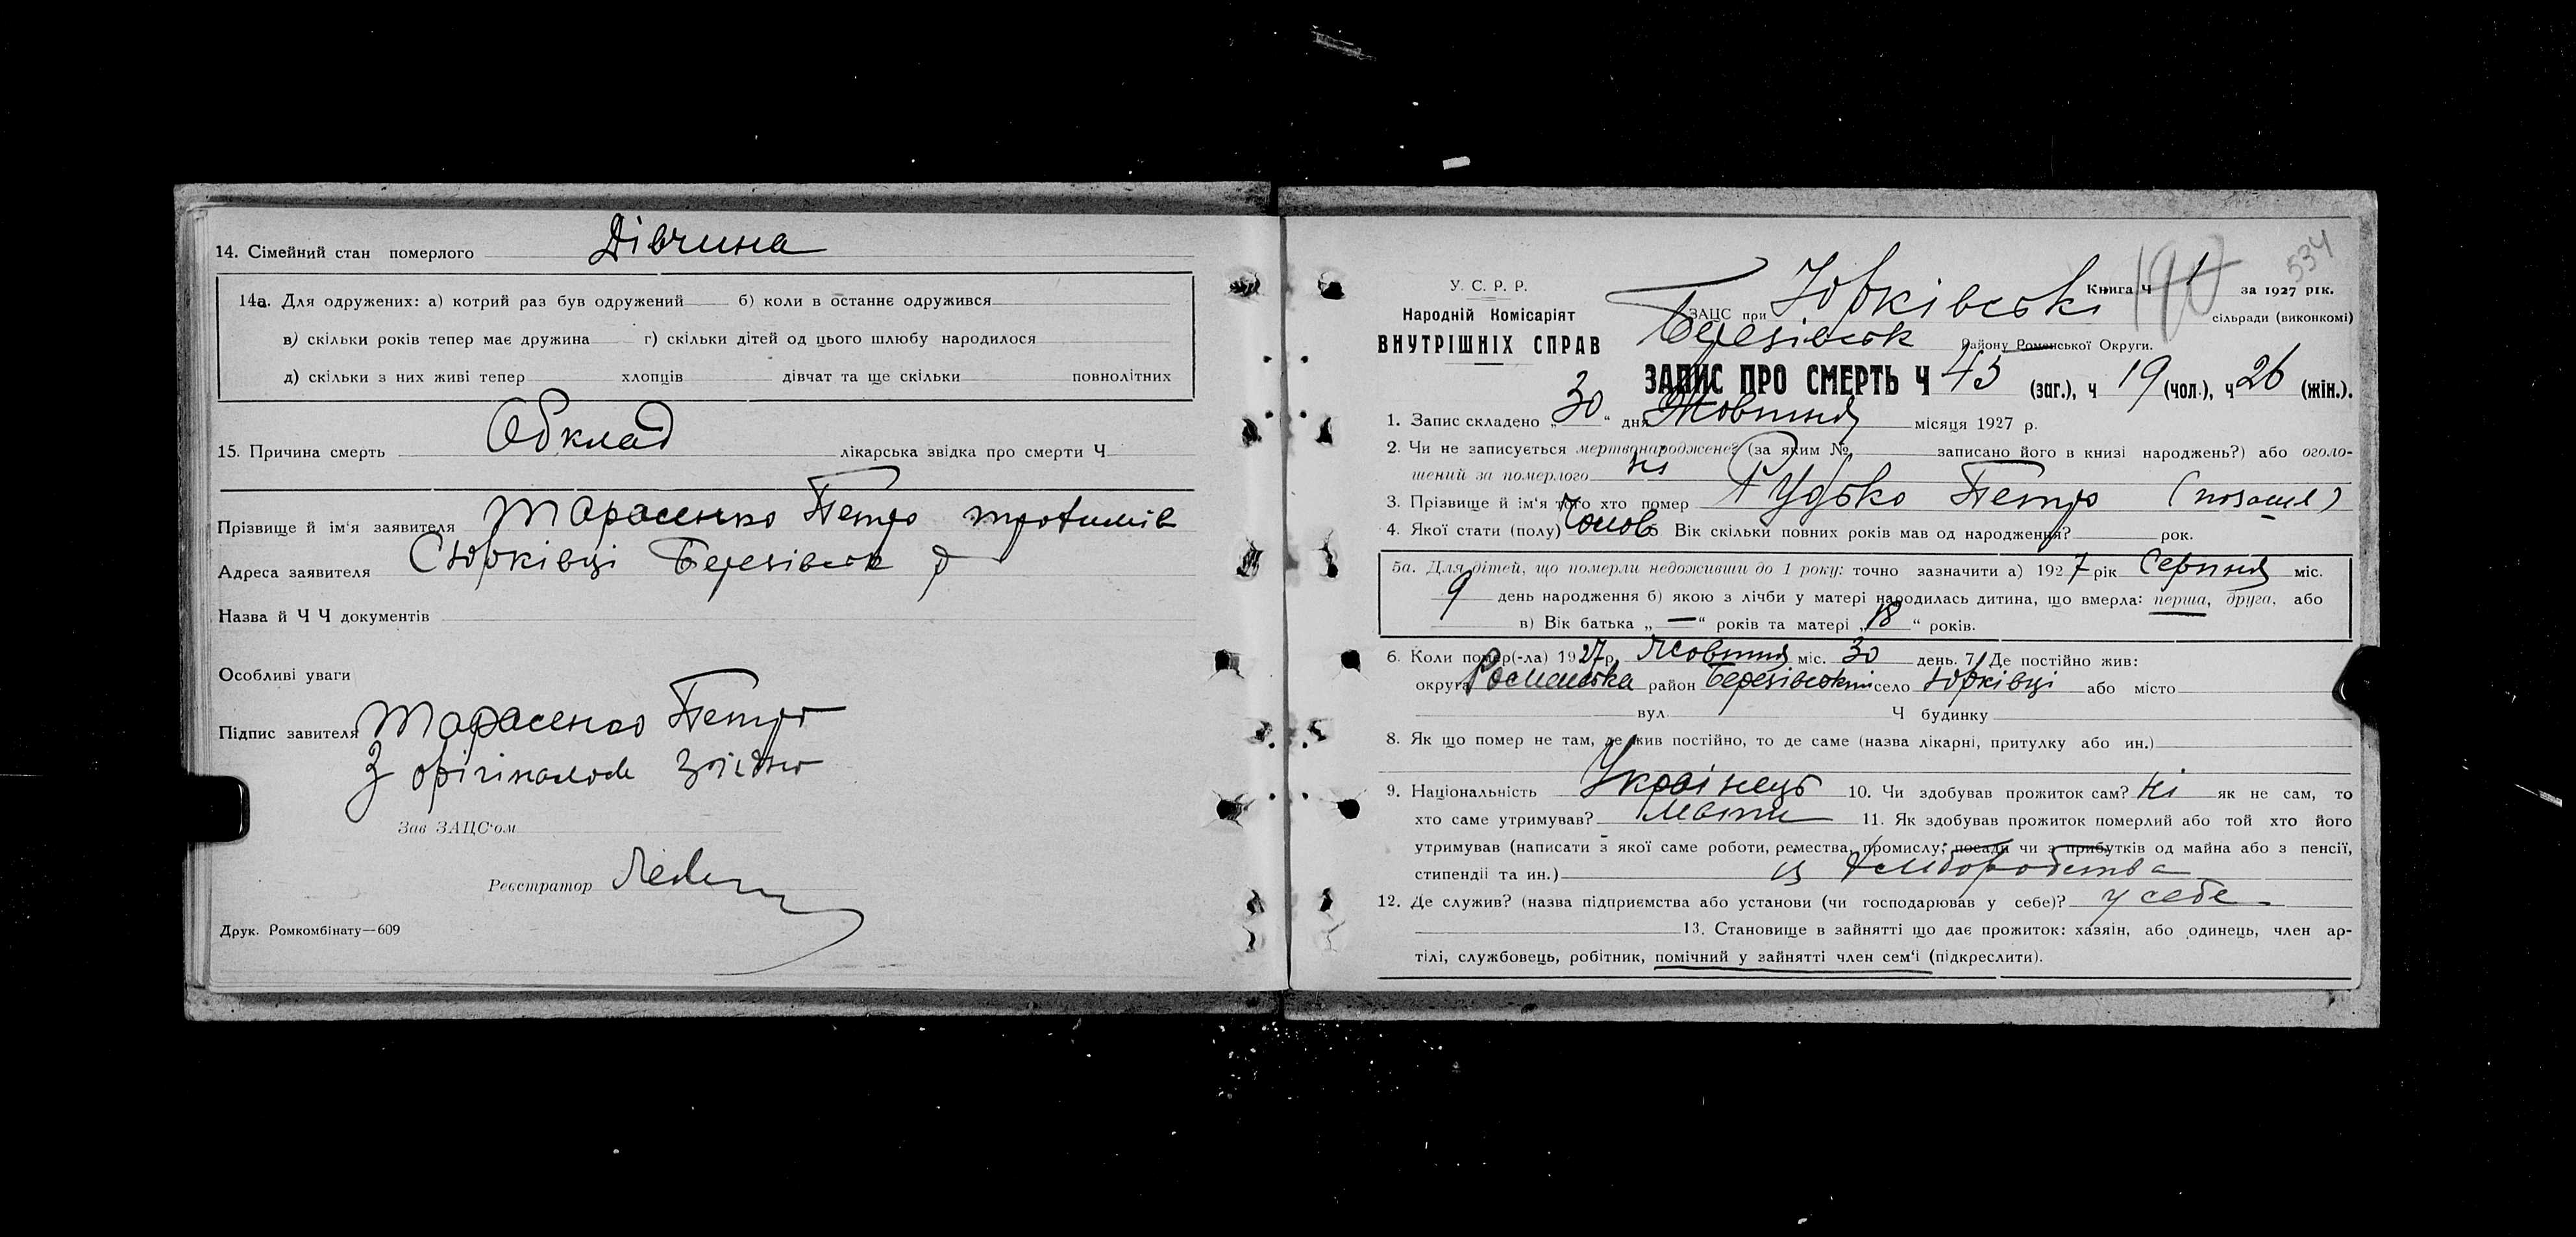 14. Сімейний стан померлого Дівчина
14а. Для одружених: а) котрий раз був одружений б) коли в останнє одружився
в) скільки років тепер має дружина г) скільки дітей од цього шлюбу народилося
д) скільки з них живі тепер хлопців дівчат та ще скільки повнолітних
15. Причина смерть Обклад лікарська звідка про смерти Ч
Прізвище й ім'я заявителя Тарасенко Петро трохимів
Адреса заявителя С Юрківці Березівськ р
Назва й Ч Ч документів
Особливі уваги
Підпис завителя Тарасенко Петро
З орігіналом згідно
Зав ЗАЦС'ом
Реєстратор
Друк. Ромкомбінату—609
534
190
У. С. Р. Р.
Народній Комісаріят
ВНУТРІШНІХ СПРАВ
Книга Ч 1 за 1927 рік.
ЗАЦС при Юрківські сільради (виконкомі)
Березівськ Району Роменської Округи.
ЗАПИС ПРО СМЕРТЬ Ч 45 (заг.), ч 19 (чол.), ч 26 (жін.).
1. Запис складено „30“ дня Жовтня місяця 1927 р.
2. Чи не записується мертвонароджене? (за яким № записано його в книзі народжень?) або оголо-
шений за померлого ні
3. Прізвище й ім'я того хто помер Рудько Петро (позашл)
4. Якої стати (полу) Чолов 5 Вік скільки повних років мав од народження? рок.
5а. Для дітей, що померли недоживши до 1 року: точно зазначити а) 1927 рік Серпня міс.
9 день народження б) якою з лічби у матері народилась дитина, що вмерла: перша, друга, або
в) Вік батька „—“ років та матері „18“ років.
6. Коли помер(-ла) 1927 р. Жовтня міс. 30 день. 7. Де постійно жив:
округа Роменська район Березівський село Юрківці або місто
вул. Ч будинку
8. Як що помер не там, де жив постійно, то де саме (назва лікарні, притулку або ин.)
9. Національність Українець 10. Чи здобував прожиток сам? Ні як не сам, то
хто саме утримував? мати 11. Як здобував прожиток померлий або той хто його
утримував (написати з якої саме роботи, ремества, промислу, посади чи з прибутків од майна або з пенсії,
стипендіі та ин.) із хліборобства
12. Де служив? (назва підприємства або установи (чи господарював у себе)? у себе
13. Становище в зайнятті що дає прожиток: хазяін, або одинець, член ар-
тілі, службовець, робітник, помічний у зайнятті член сем'ї (підкреслити).